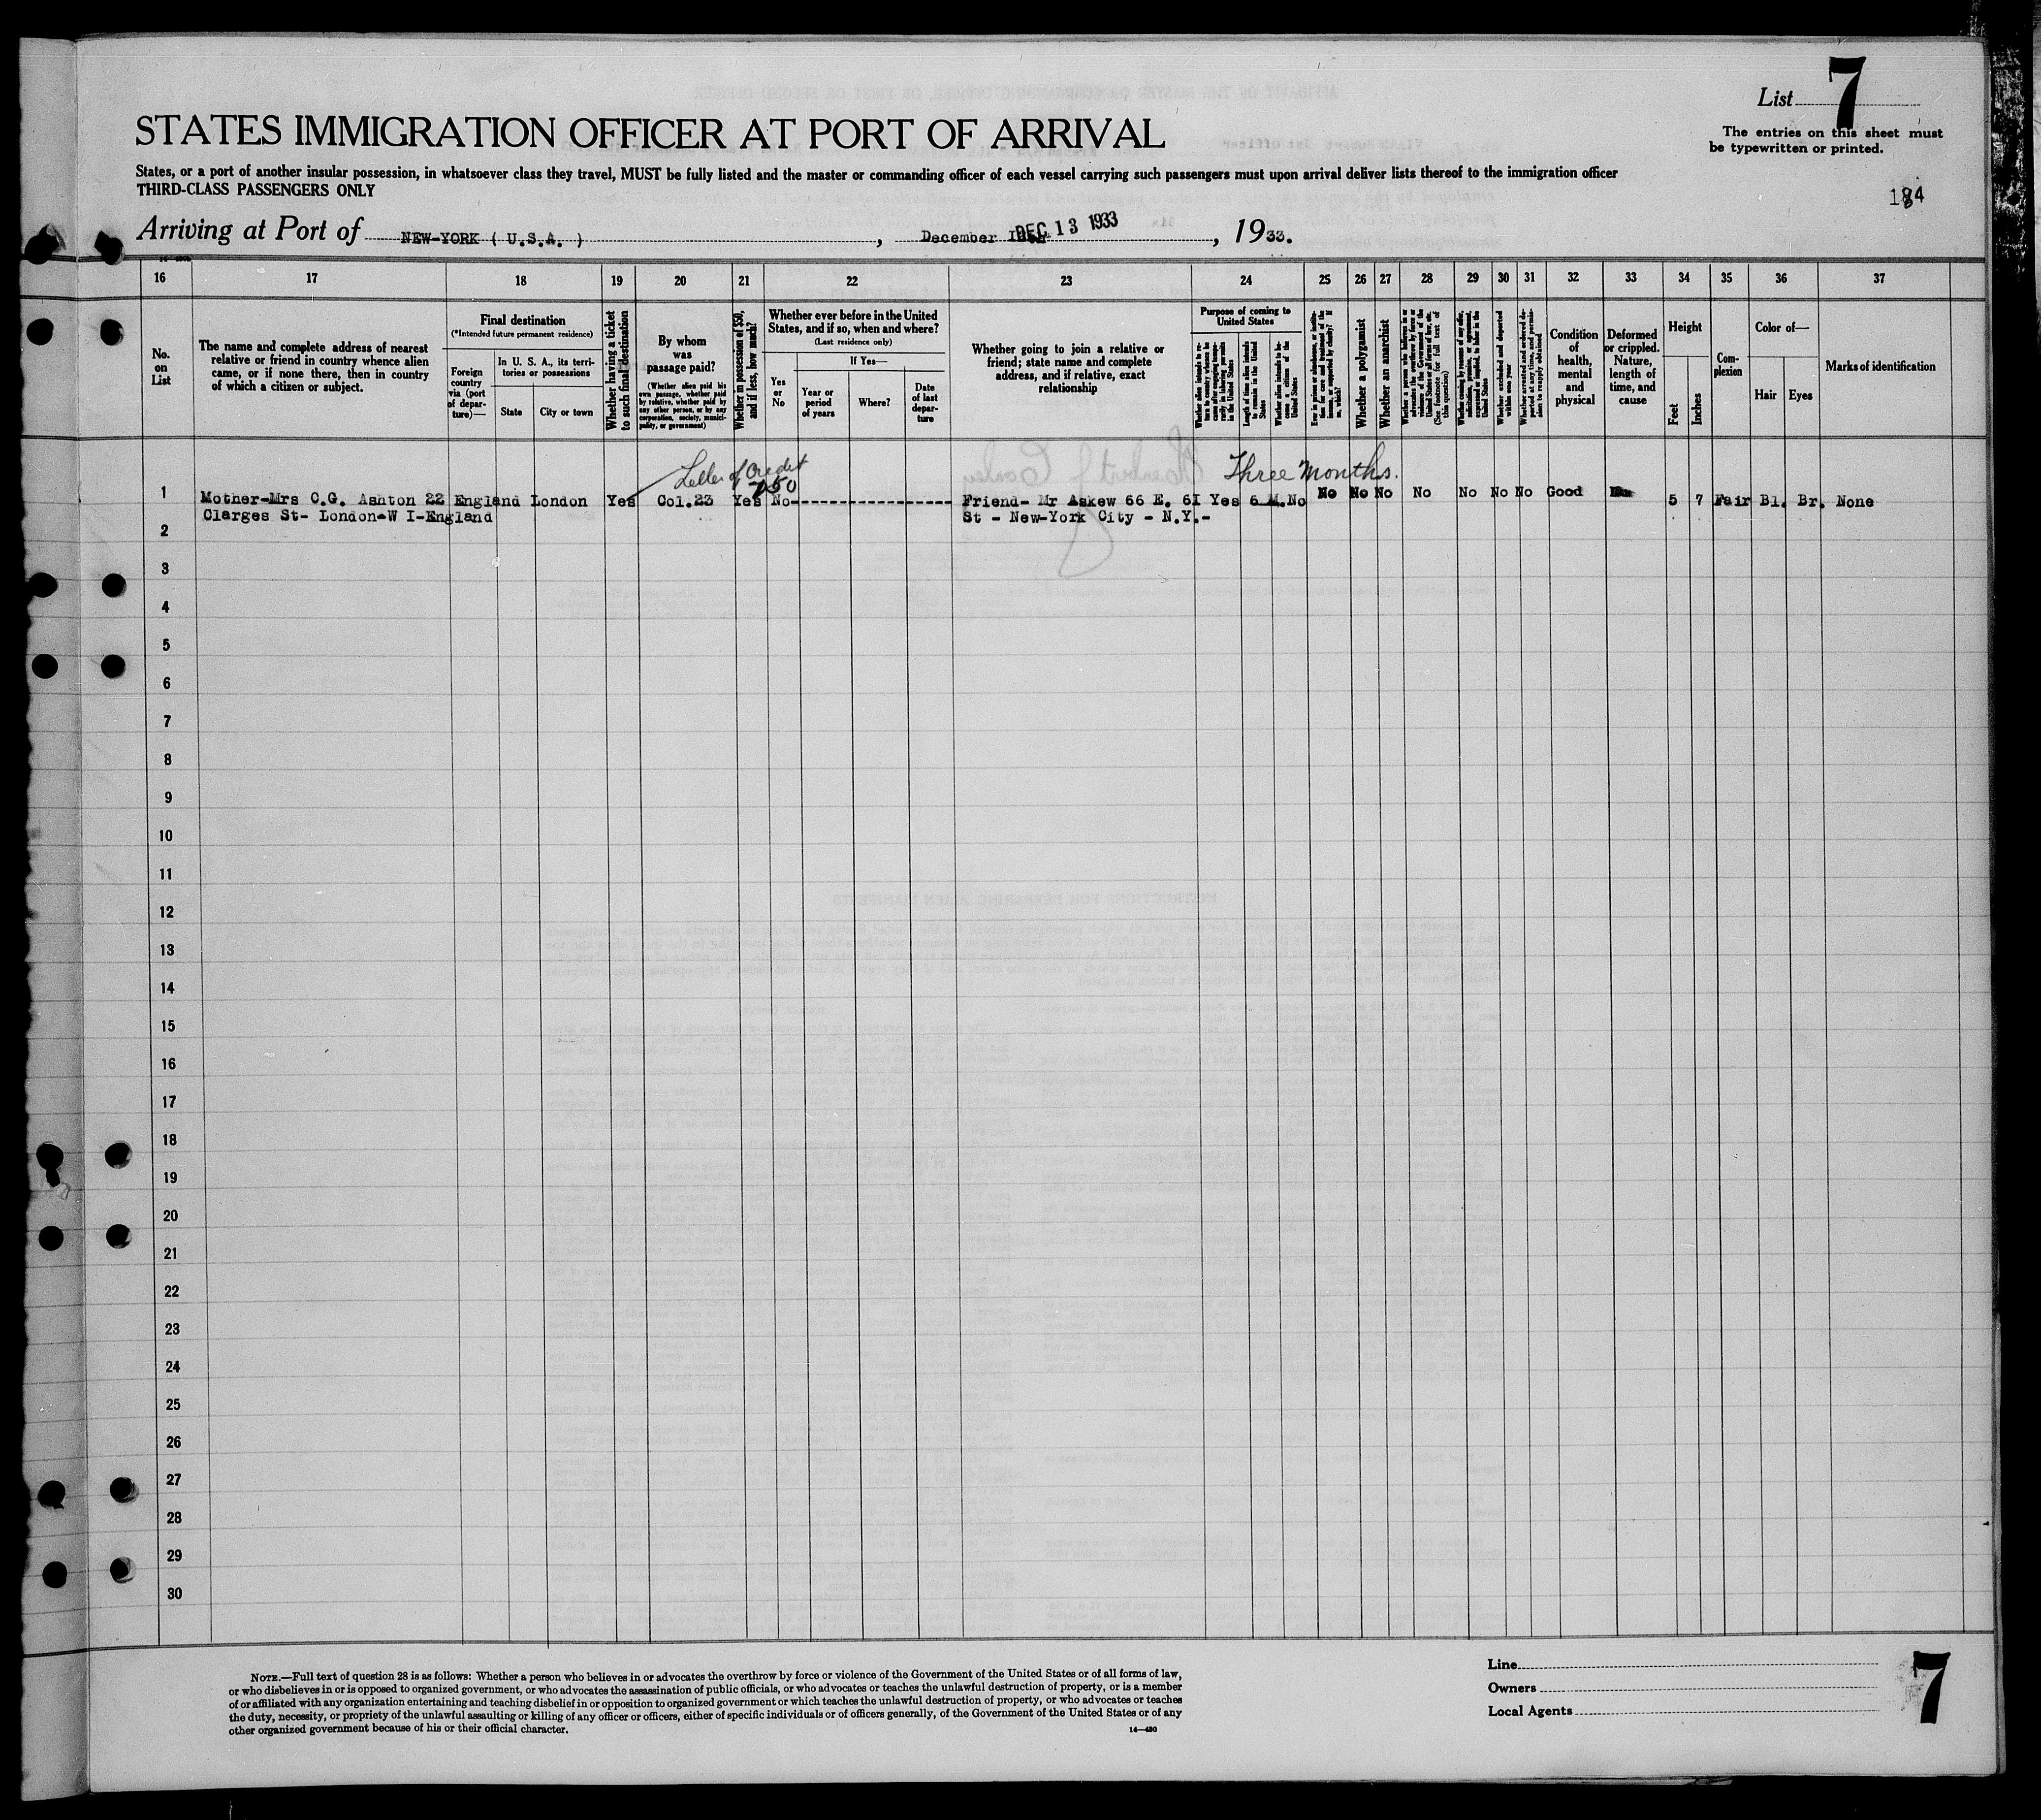 List 7
STATES IMMIGRATION OFFICER AT PORT OF ARRIVAL
The entries on this sheet must
be typewritten or printed.
States, or a port of another insular possession, in whatsoever class they travel, MUST be fully listed and the master or commanding officer of each vessel carrying such passengers must upon arrival deliver lists thereof to the immigration officer
THIRD-CLASS PASSENGERS ONLY
184
Arriving at Port of NEW-YORK ( U.S.A. ) , December DEC 13 1933 , 1933.
16 17 18 19 20 21 22 23 24 25 26 27 28 29 30 31 32 33 34 35 36 37
No.
on
List
The name and complete address of nearest
relative or friend in country whence alien
came, or if none there, then in country
of which a citizen or subject.
Final destination
(*Intended future permanent residence)
Foreign
country
via (port
of depar-
ture)—
In U. S. A., its terri-
tories or possessions
State
City or town
Whether having a ticket
to such final destination
By whom
was
passage paid?
(Whether alien paid his
own passage, whether paid
by relative, whether paid by
any other person, or by any
corporation, society, munici-
pality, or government)
Whether in possession of $50,
and if less, how much?
Whether ever before in the United
States, and if so, when and where?
(Last residence only)
Yes
or
No
If Yes—
Year or
period
of years
Where?
Date
of last
depar-
ture
Whether going to join a relative or
friend; state name and complete
address, and if relative, exact
relationship
Purpose of coming to
United States
Whether alien intends to re-
turn to country whence he
came after engaging tempo-
rarily in laboring pursuits
in the United States
Length of time alien intends
to remain in the United
States
Whether alien intends to be-
come a citizen of the
United States
Ever in prison or almshouse, or institu-
tion for care and treatment of the
insane, or supported by charity? If
so, which?
Whether a polygamist
Whether an anarchist
(See footnote for full text of
this question)
Whether coming by reason of any offer,
solicitation, promise, or agreement,
expressed or implied, to labor in the
United States
Whether excluded and deported
within one year
Whether arrested and ordered de-
ported at any time, and permis-
sion to reapply obtained
Condition
of
health,
mental
and
physical
Deformed
or crippled.
Nature,
length of
time, and
cause
Height
Feet
Inches
Com-
plexion
Color of—
Hair
Eyes
Marks of identification
Letter of Credit
750
Three Months.
1 Mother-Mrs C.G. Ashton 22 England London Yes Col.23 Yes No Friend- Mr Askew 66 E. 6I Yes 6 M. No No No No No No No No Good 5 7 Fair Bl. Br. None
Clarges St- London-W I-England St - New-York City - N.Y.-
2
3
4
5
6
7
8
9
10
11
12
13
14
15
16
17
18
19
20
21
22
23
24
25
26
27
28
29
30
NOTE.—Full text of question 28 is as follows: Whether a person who believes in or advocates the overthrow by force or violence of the Government of the United States or of all forms of law,
or who disbelieves in or is opposed to organized government, or who advocates the assassination of public officials, or who advocates or teaches the unlawful destruction of property, or is a member
of or affiliated with any organization entertaining and teaching disbelief in or opposition to organized government or which teaches the unlawful destruction of property, or who advocates or teaches
the duty, necessity, or propriety of the unlawful assaulting or killing of any officer or officers, either of specific individuals or of officers generally, of the Government of the United States or of any
other organized government because of his or their official character.
14—430
Line
Owners
Local Agents
7